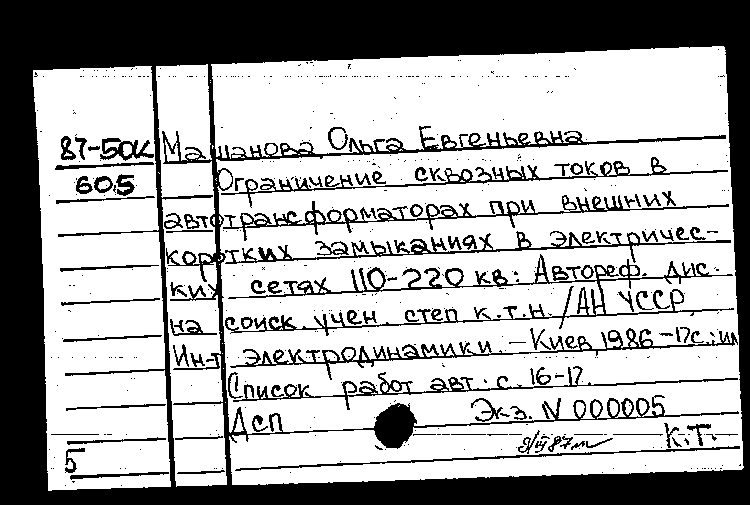 87-50K Машанова Ольга Евгеньевна
605 Ограничение сквозных токов в
автотрансформаторах при внешних
коротких замыканиях в электричес-
ких сетях 110-220 кв: Автореф. дис.
на соиск. учен. степ к.т.н. /АН УССР,
Ин-т электродинамики. - Киев, 1986 - 17с.: ил
Список работ авт.: с. 16-17.
Дсп Экз. N 000005
К.Т.
5